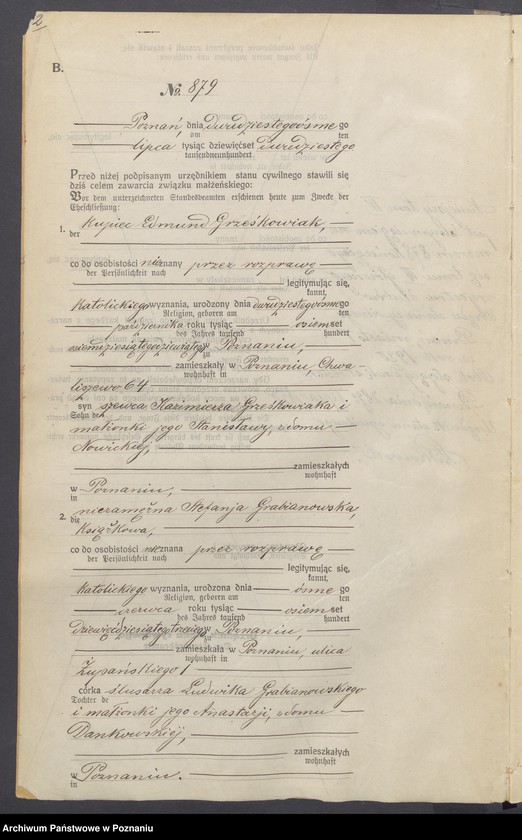 2
B.
No. 879
Poznań, dnia dwudziestegoósmego
am ten
lipca tysiąc dziewięćset dwudziestego
tausendneunhundert
Przed niżej podpisanym urzędnikiem stanu cywilnego stawili się
dziś celem zawarcia związku małżeńskiego:
Vor dem unterzeichneten Standesbeamten erschienen heute zum Zwecke der
Eheschließung:
1. kupiec Edmund Grześkowiak,
der
co do osobistości nieznany przez rozprawę
der Persönlichkeit nach
legitymując się,
kannt,
katolickiego wyznania, urodzony dnia dwudziestegoósmego
Religion, geboren am ten
października roku tysiąc osiemset
des Jahres tausend hundert
osiemdziesiątegodziewiątego w Poznaniu,
zu
zamieszkały w Poznaniu, Chwa-
wohnhaft in
liszewo 64
syn szewca Kazimierza Grześkowiaka i
Sohn des
małżonki jego Stanisławy, z domu
Nowickiej,
zamieszkałych
wohnhaft
w Poznaniu,
in
2. niezamężna Stefanja Grabianowska,
die
książkowa,
co do osobistości nieznana przez rozprawę
der Persönlichkeit nach
legitymując się,
kannt,
katolickiego wyznania, urodzona dnia ósmego
Religion, geboren am ten
czerwca roku tysiąc osiemset
des Jahres tausend hundert
dziewięćdziesiątegotrzeciego w Poznaniu,
zu
zamieszkała w Poznaniu, ulica
wohnhaft in
Żupańskiego 1
córka ślusarza Ludwika Grabianowskiego
Tochter de
i małżonki jego Anastazji, z domu
Dankowskiej,
zamieszkałych
wohnhaft
w Poznaniu.
in
Archiwum Państwowe w Poznaniu